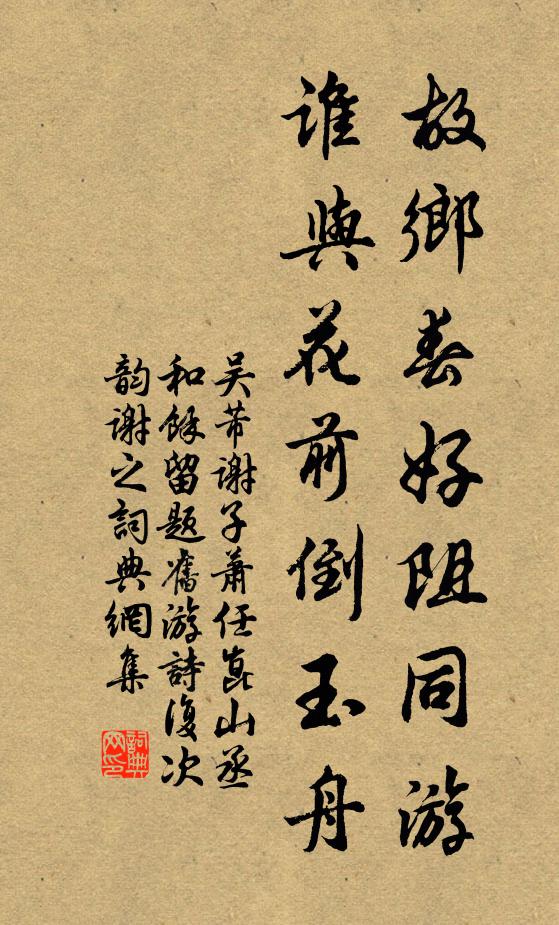 故鄉春好阻同游
誰與花前倒玉舟
吳芾謝子蕭任崑山丞
和餘留題舊游詩復次
韵謝之詞典網集
詞典
网印